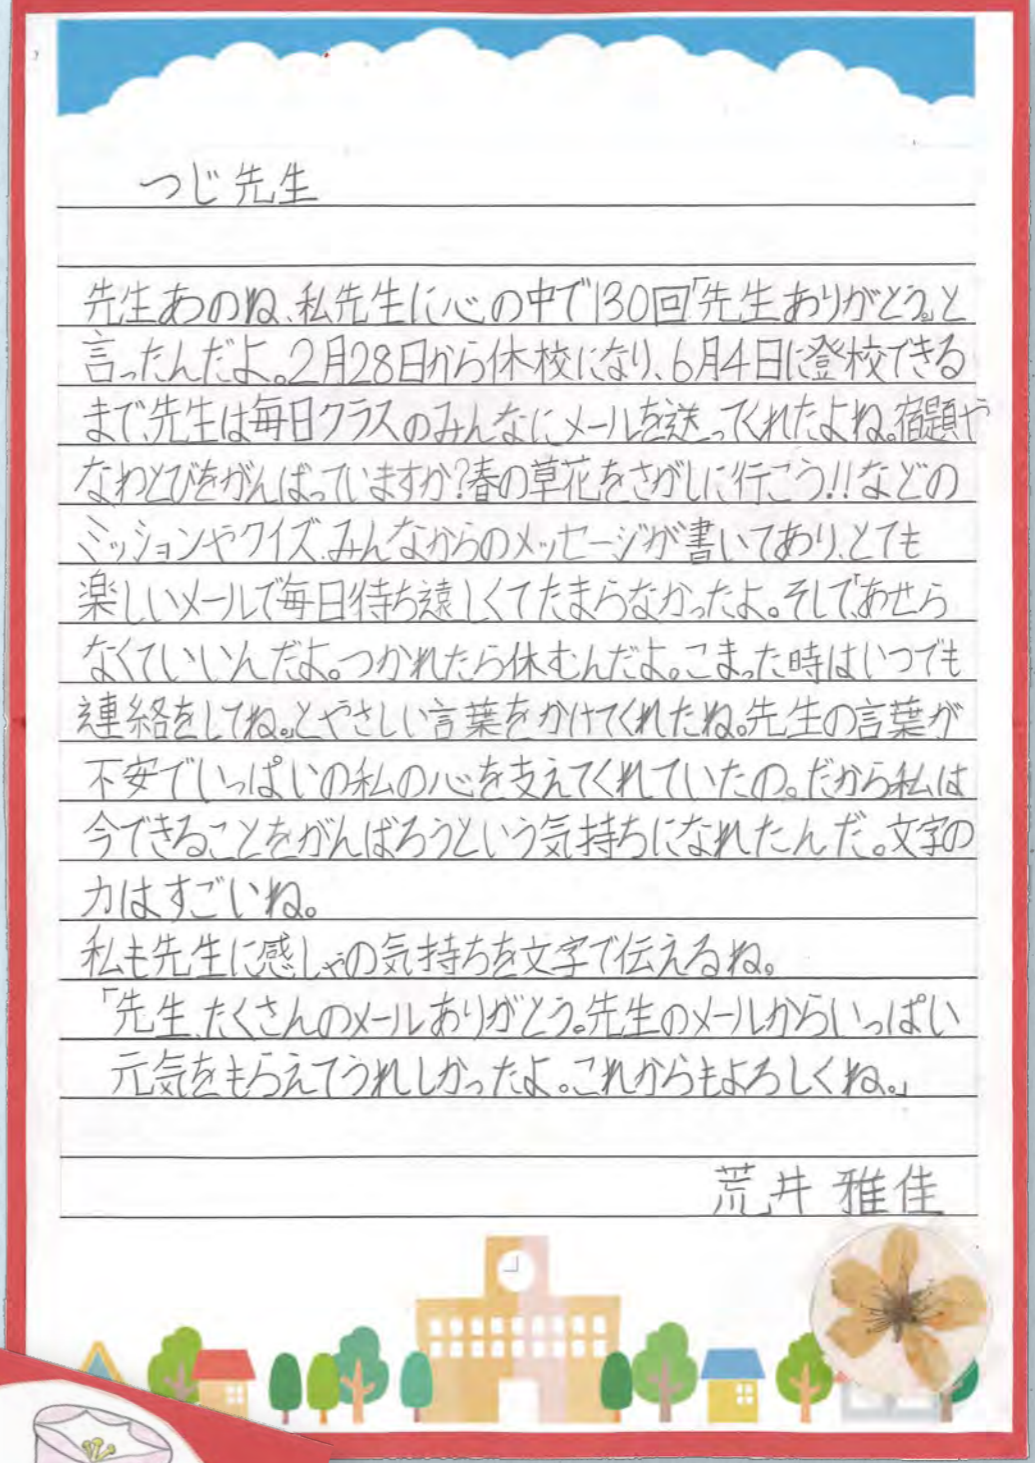 つじ先生
先生あのね、私先生に心の中で130回「先生ありがとう。」と
言ったんだよ。2月28日から休校になり、6月4日に登校できる
まで、先生は毎日クラスのみんなにメールを送ってくれたよね。宿題や
なわとびをがんばっていますか?春の草花をさがしに行こう!!などの
ミッションやクイズ、みんなからのメッセージが書いてあり、とても
楽しいメールで毎日待ち遠しくてたまらなかったよ。そして「あせら
なくていいんだよ。つかれたら休むんだよ。こまった時はいつでも
連絡をしてね。」とやさしい言葉をかけてくれたね。先生の言葉が
不安でいっぱいの私の心を支えてくれていたの。だから私は
今できることをがんばろうという気持ちになれたんだ。文字の
力はすごいね。
私も先生に感しゃの気持ちを文字で伝えるね。
「先生、たくさんのメールありがとう。先生のメールからいっぱい
元気をもらえてうれしかったよ。これからもよろしくね。」
荒井 雅佳